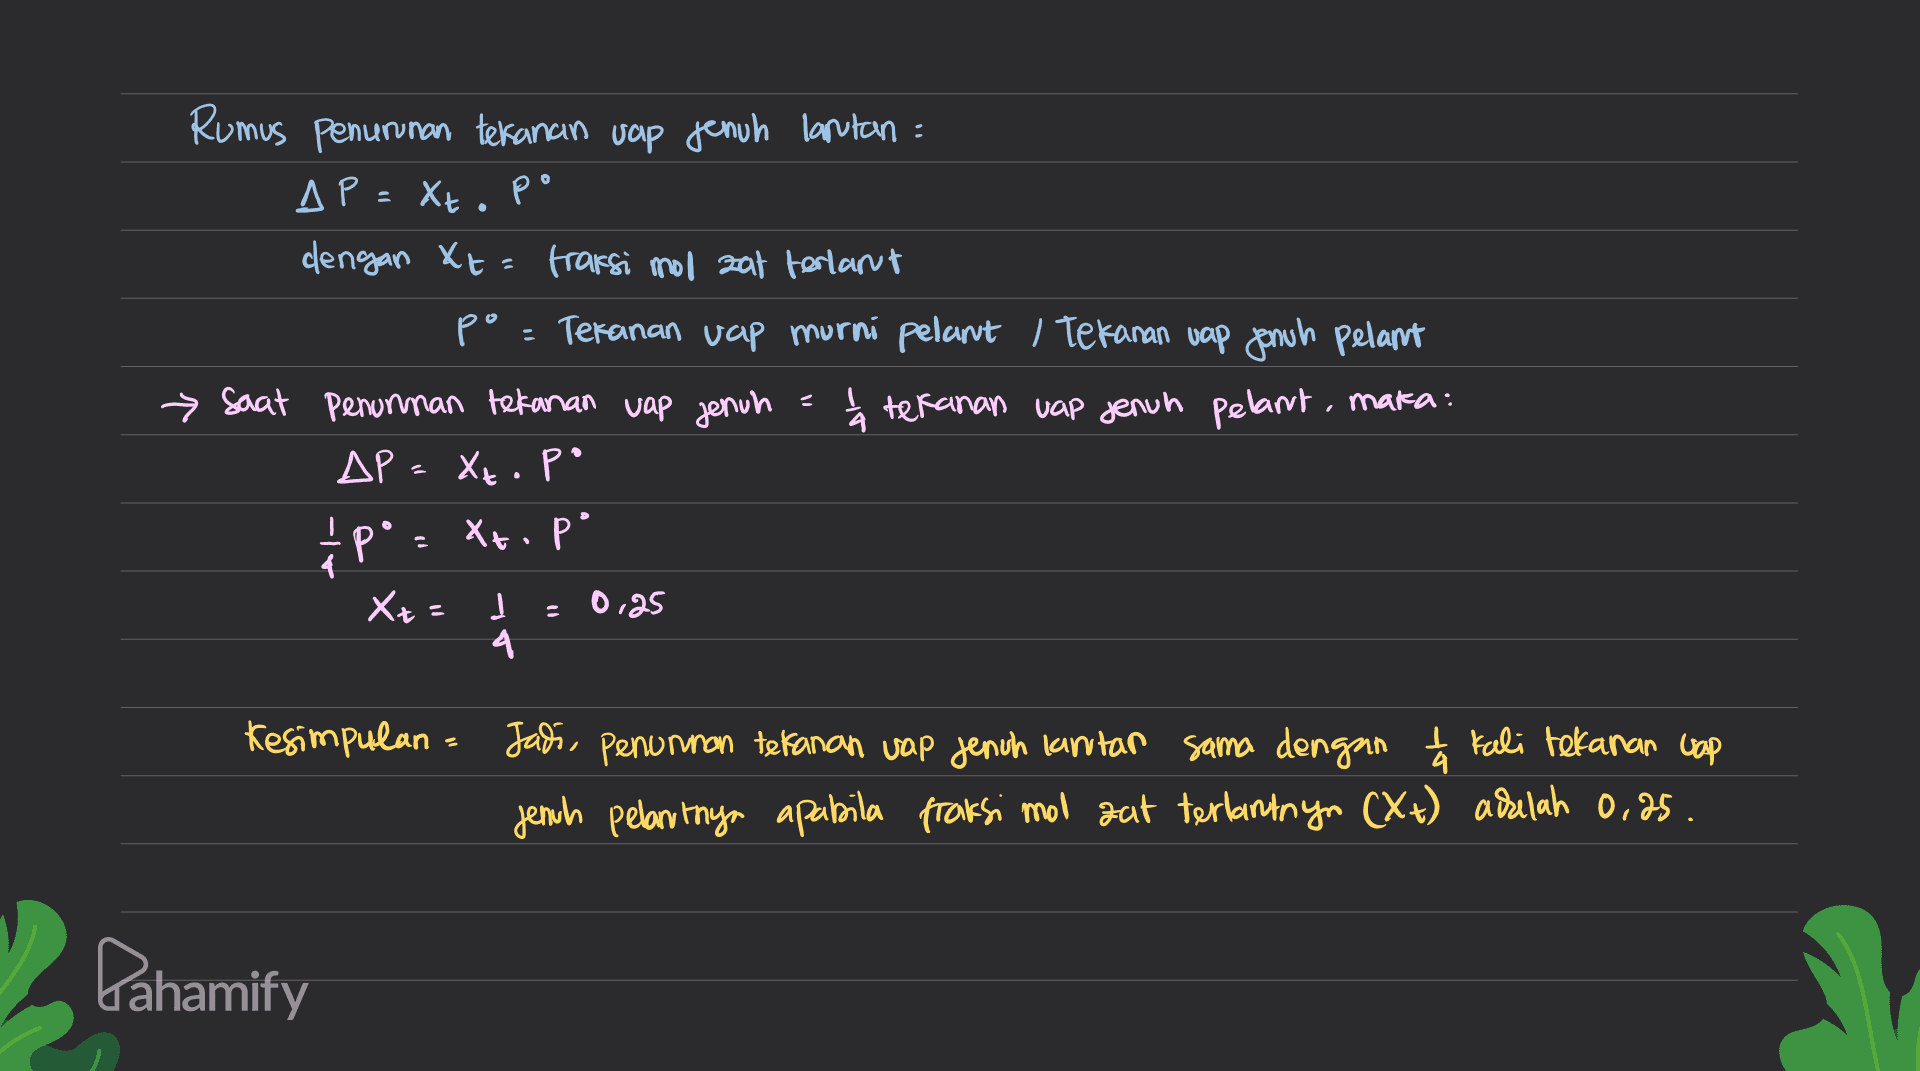 Rumus penurunan tekanan uap jenuh larutan :
ΔP = Xt . P°
dengan Xt = fraksi mol zat terlarut
P° = Tekanan uap murni pelarut / Tekanan uap jenuh pelarut
→ Saat penurunan tekanan uap jenuh = 1/4 tekanan uap jenuh pelarut, maka :
ΔP = Xt . P°
1/4 P° = Xt . P°
Xt = 1/4 = 0,25
Kesimpulan = Jadi, penurunan tekanan uap jenuh larutan sama dengan 1/4 kali tekanan uap
jenuh pelarutnya apabila fraksi mol zat terlarutnya (Xt) adalah 0,25 .
Pahamify